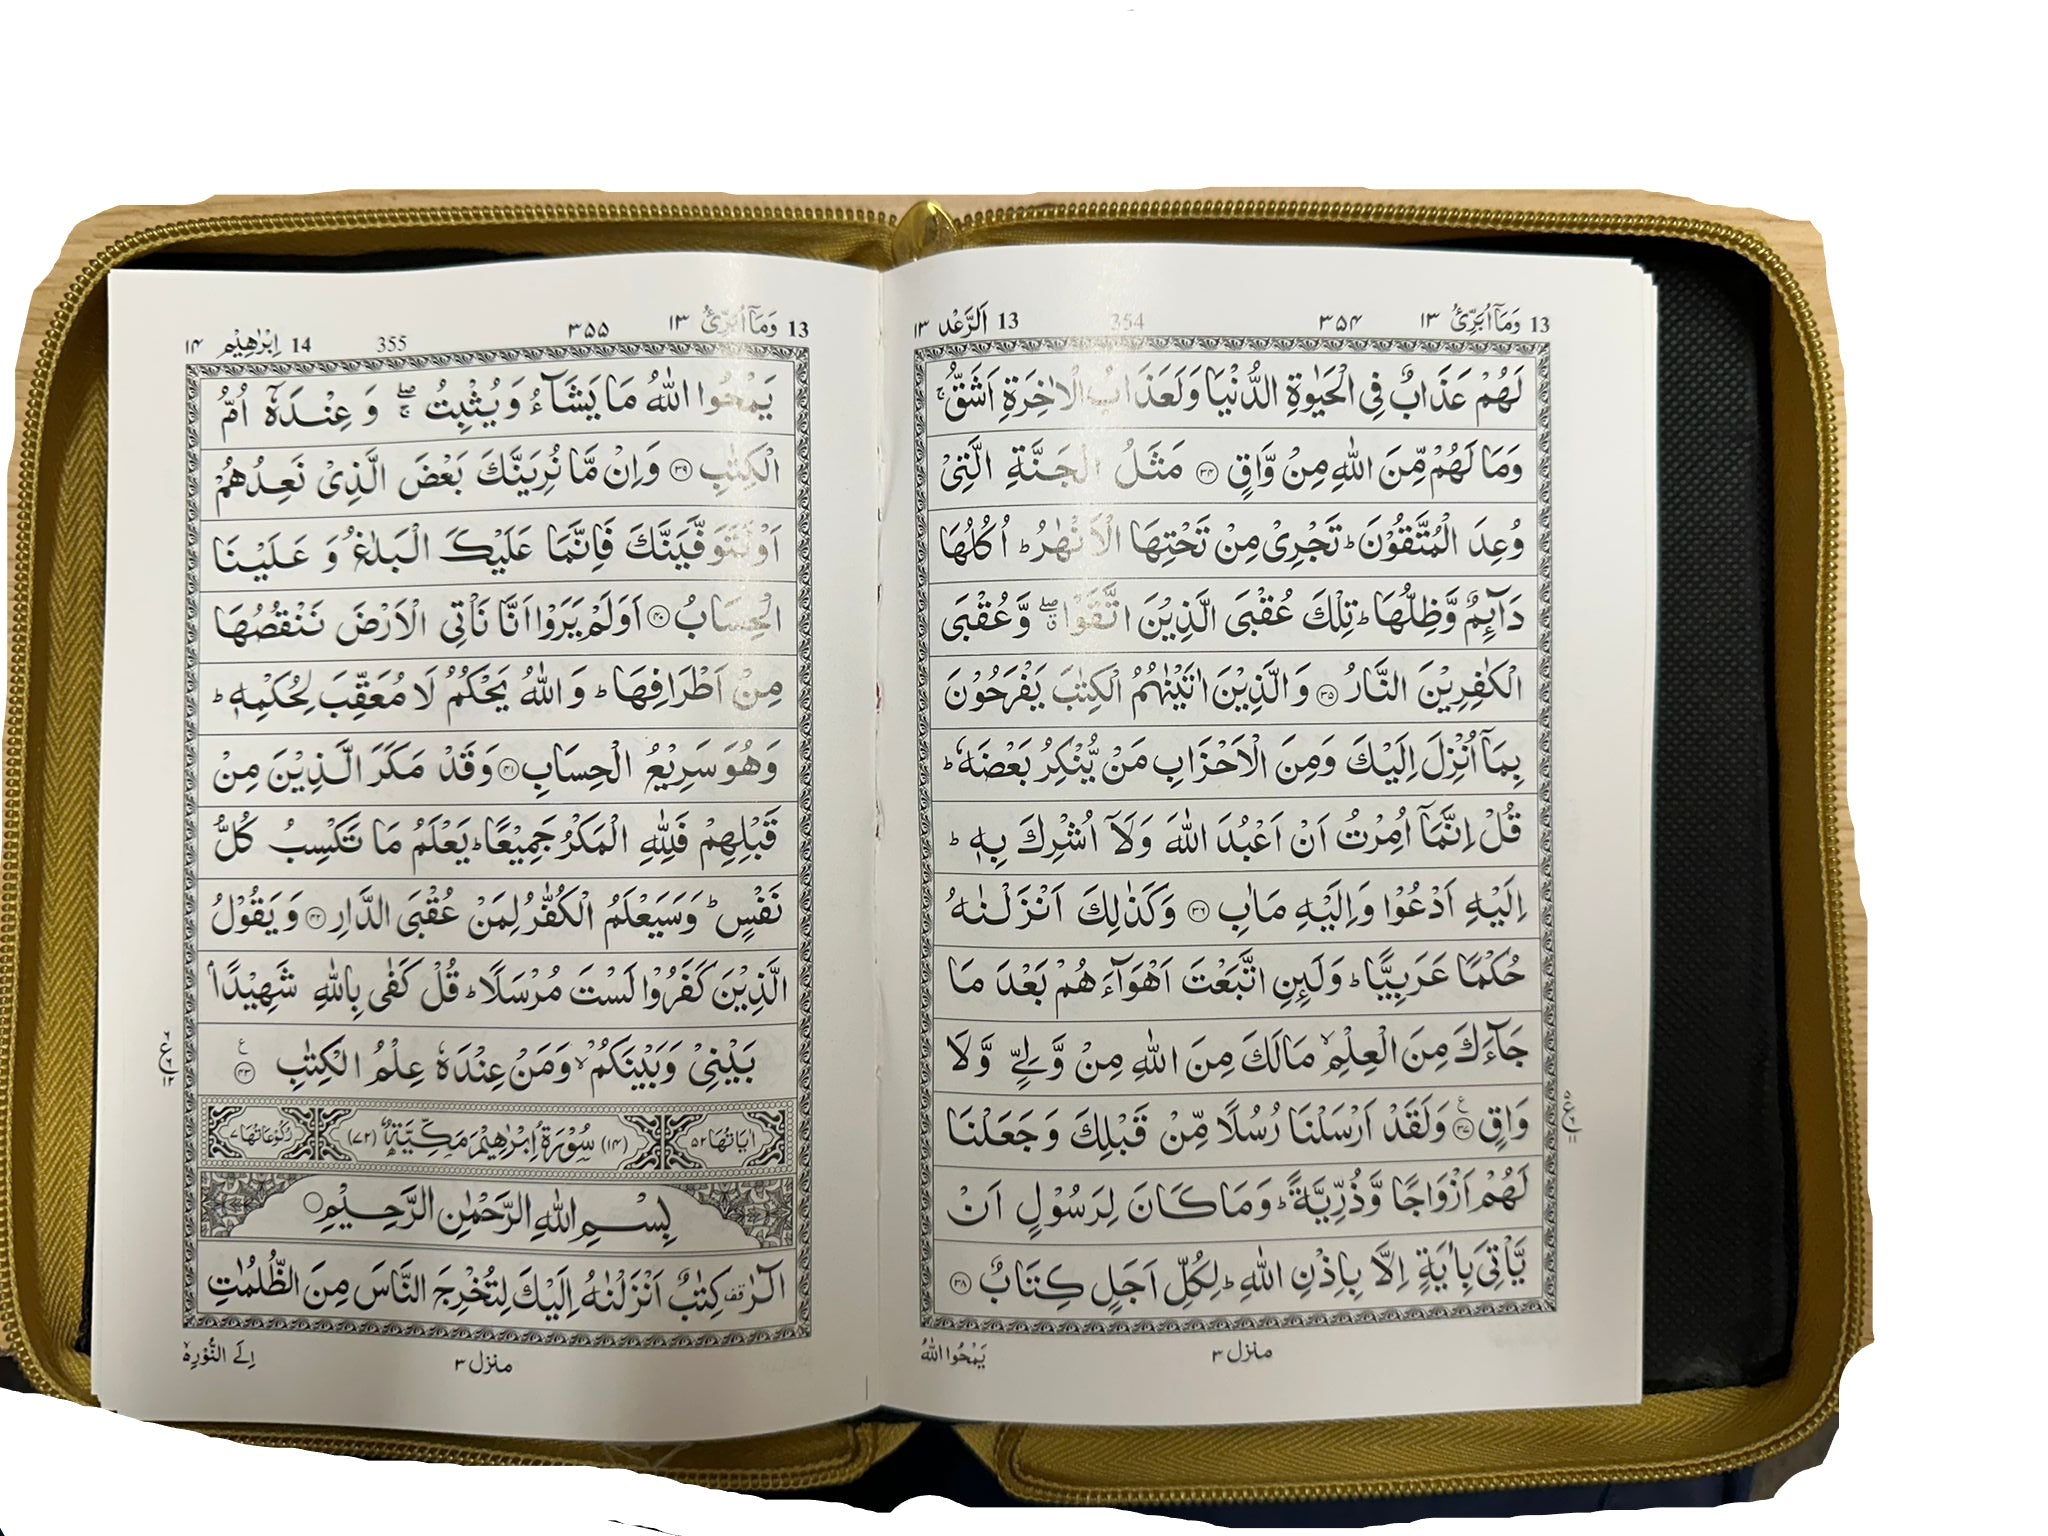 13 وَمَآ اُبَرِّئُ ١٣ ۳۵۴ 354 13 اَلرَّعْد ١٣
لَهُمْ عَذَابٌ فِی الْحَیٰوةِ الدُّنْیَا وَلَعَذَابُ الْاٰخِرَةِ اَشَقُّ ۚ
وَمَا لَهُمْ مِّنَ اللّٰهِ مِنْ وَّاقٍ ﴿۳۴﴾ مَثَلُ الْجَنَّةِ الَّتِیْ
وُعِدَ الْمُتَّقُوْنَ ؕ تَجْرِیْ مِنْ تَحْتِهَا الْاَنْهٰرُ ؕ اُكُلُهَا
دَآئِمٌ وَّظِلُّهَا ؕ تِلْكَ عُقْبَی الَّذِیْنَ اتَّقَوْا ۖۗ وَّعُقْبَی
الْكٰفِرِیْنَ النَّارُ ﴿۳۵﴾ وَالَّذِیْنَ اٰتَیْنٰهُمُ الْكِتٰبَ یَفْرَحُوْنَ
بِمَآ اُنْزِلَ اِلَیْكَ وَمِنَ الْاَحْزَابِ مَنْ یُّنْكِرُ بَعْضَهٗ ؕ
قُلْ اِنَّمَآ اُمِرْتُ اَنْ اَعْبُدَ اللّٰهَ وَلَآ اُشْرِكَ بِهٖ ؕ
اِلَیْهِ اَدْعُوْا وَاِلَیْهِ مَاٰبِ ﴿۳۶﴾ وَكَذٰلِكَ اَنْزَلْنٰهُ
حُكْمًا عَرَبِیًّا ؕ وَلَئِنِ اتَّبَعْتَ اَهْوَآءَهُمْ بَعْدَ مَا
جَآءَكَ مِنَ الْعِلْمِ ۙ مَالَكَ مِنَ اللّٰهِ مِنْ وَّلِیٍّ وَّلَا
وَاقٍ ﴿۳۷﴾ ع وَلَقَدْ اَرْسَلْنَا رُسُلًا مِّنْ قَبْلِكَ وَجَعَلْنَا
لَهُمْ اَزْوَاجًا وَّذُرِّیَّةً ؕ وَمَا كَانَ لِرَسُوْلٍ اَنْ
یَّاْتِیَ بِاٰیَةٍ اِلَّا بِاِذْنِ اللّٰهِ ؕ لِكُلِّ اَجَلٍ كِتَابٌ ﴿۳۸﴾
منزل ۳ یَمْحُوا اللّٰهُ
13 وَمَآ اُبَرِّئُ ١٣ ۳۵۵ 355 14 اِبْرٰهِیْم ۱۴
یَمْحُوا اللّٰهُ مَا یَشَآءُ وَیُثْبِتُ ۖۚ وَعِنْدَهٗۤ اُمُّ
الْكِتٰبِ ﴿۳۹﴾ وَاِنْ مَّا نُرِیَنَّكَ بَعْضَ الَّذِیْ نَعِدُهُمْ
اَوْ نَتَوَفَّیَنَّكَ فَاِنَّمَا عَلَیْكَ الْبَلٰغُ وَعَلَیْنَا
الْحِسَابُ ﴿۴۰﴾ اَوَلَمْ یَرَوْا اَنَّا نَاْتِی الْاَرْضَ نَنْقُصُهَا
مِنْ اَطْرَافِهَا ؕ وَاللّٰهُ یَحْكُمُ لَا مُعَقِّبَ لِحُكْمِهٖ ؕ
وَهُوَ سَرِیْعُ الْحِسَابِ ﴿۴۱﴾ وَقَدْ مَكَرَ الَّذِیْنَ مِنْ
قَبْلِهِمْ فَلِلّٰهِ الْمَكْرُ جَمِیْعًا ؕ یَعْلَمُ مَا تَكْسِبُ كُلُّ
نَفْسٍ ؕ وَسَیَعْلَمُ الْكُفّٰرُ لِمَنْ عُقْبَی الدَّارِ ﴿۴۲﴾ وَیَقُوْلُ
الَّذِیْنَ كَفَرُوْا لَسْتَ مُرْسَلًا ؕ قُلْ كَفٰی بِاللّٰهِ شَهِیْدًۢا
بَیْنِیْ وَبَیْنَكُمْ ۙ وَمَنْ عِنْدَهٗ عِلْمُ الْكِتٰبِ ﴿۴۳﴾ ع
اٰیَاتُهَا ۵۲ (۱۴) سُوْرَةُ اِبْرٰهِیْمَ مَكِّیَّةٌ (۷۲) رُكُوْعَاتُهَا ۷
بِسْمِ اللّٰهِ الرَّحْمٰنِ الرَّحِیْمِ
الٓرٰ ۫ كِتٰبٌ اَنْزَلْنٰهُ اِلَیْكَ لِتُخْرِجَ النَّاسَ مِنَ الظُّلُمٰتِ
منزل ۳ اِلَی النُّوْرِ ۙ۬